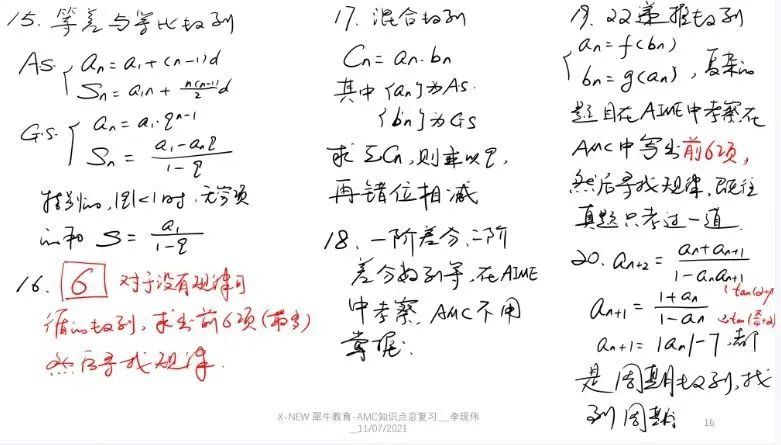 15. 等差与等比数列
A.S. { an = a1 + (n-1)d
Sn = a1n + n(n-1)/2 d
G.S. { an = a1·q^(n-1)
Sn = (a1 - anq)/(1 - q)
特别的, |q|<1时, 无穷项
的和 S = a1/(1 - q)
16. 6 对于没有规律可
循的数列, 求出前6项(最多)
然后寻找规律.
17. 混合数列
Cn = an·bn
其中 {an}为A.S.
{bn}为G.S
求ΣCn, 则乘以q,
再错位相减
18. 一阶差分、二阶
差分数列等, 在AIME
中考察, AMC不用
掌握.
19. 双递推数列
{ an = f(bn)
bn = g(an) , 复杂的
题目在AIME中考察在
AMC中写出前6项,
然后寻找规律. 既往
真题只考过一道.
20. an+2 = (an + an+1)/(1 - an an+1)
an+1 = (1 + an)/(1 - an)
an+1 = |an| - 7, 都
是周期数列, 找
到周期
X-NEW 犀牛教育-AMC知识点总复习__李现伟
_11/07/2021
16